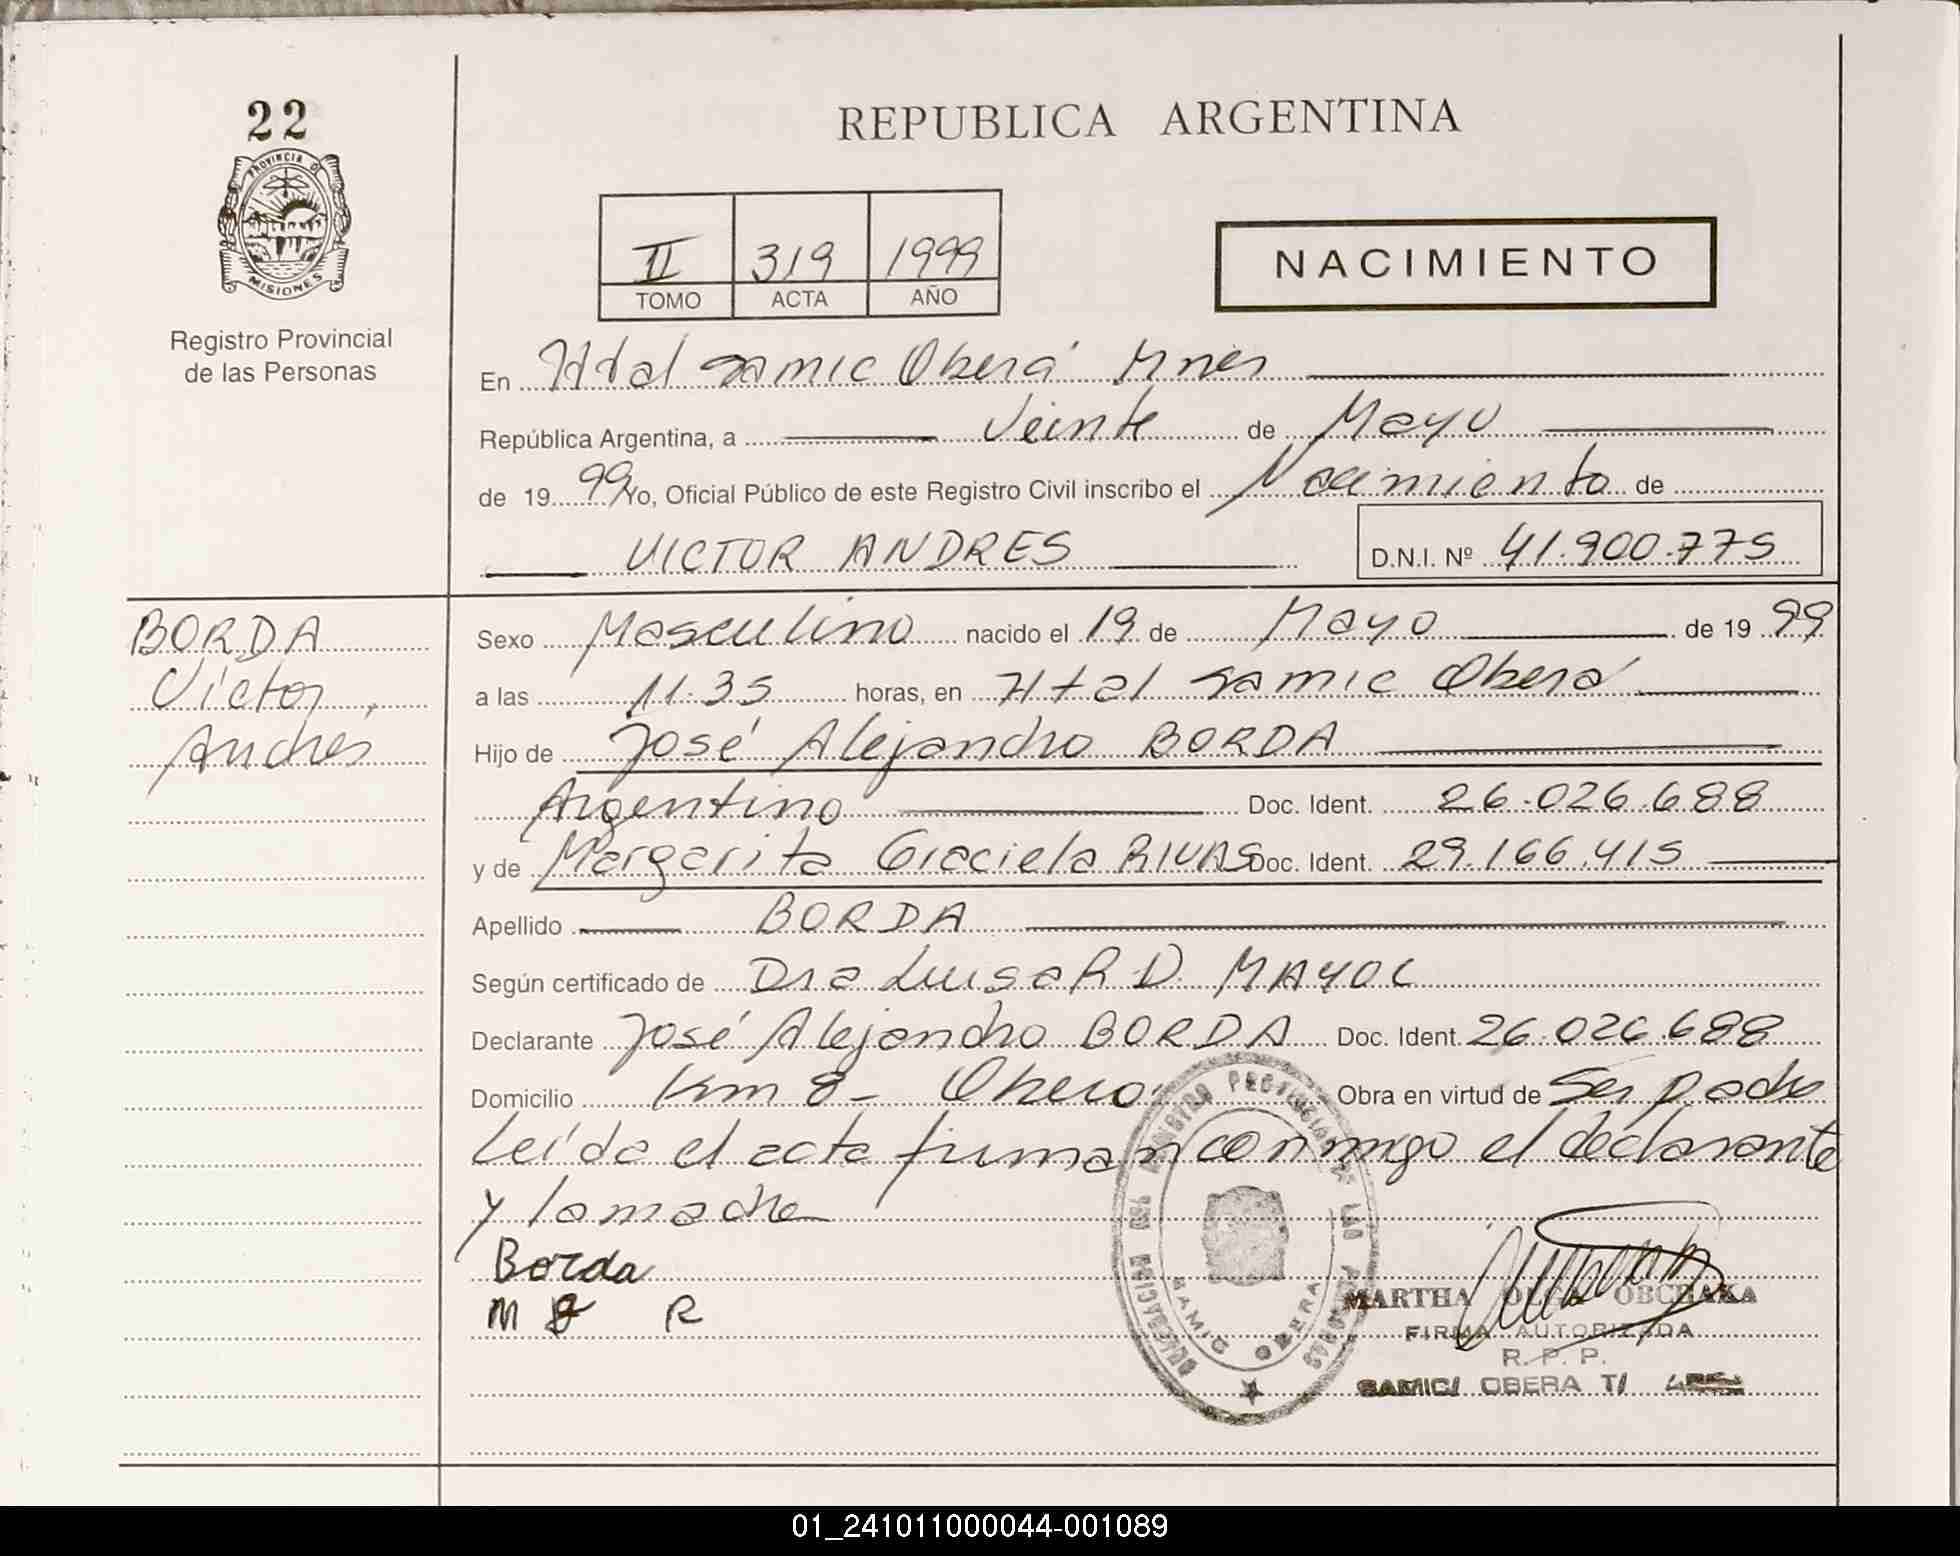 22
PROVINCIA D
MISIONES
Registro Provincial
de las Personas
REPUBLICA ARGENTINA
II 319 1999
TOMO ACTA AÑO
NACIMIENTO
En Htal Samic Oberá Mnes
República Argentina, a Veinte de Mayo
de 19 99 Yo, Oficial Público de este Registro Civil inscribo el Nacimiento de
VICTOR ANDRES D.N.I. Nº 41.900.775
BORDA
Victor,
Andres
Sexo Masculino nacido el 19 de Mayo de 19 99
a las 11.35 horas, en Htal Samic Oberá
Hijo de José Alejandro BORDA
Argentino Doc. Ident. 26.026.688
y de Margarita Graciela RIVAS Doc. Ident. 29.166.415
Apellido BORDA
Según certificado de Dra Luisa R D. MAYOL
Declarante José Alejandro BORDA Doc. Ident. 26.026.688
Domicilio Km 8 - Oberá Obra en virtud de Ser padre
Leída el acta firman conmigo el declarante
y la madre
Borda
M G R
REGISTRO PROVINCIAL DE LAS PERSONAS
SAMIC OBERA
MARTHA OLGA OBCHAKA
FIRMA AUTORIZADA
R. P. P.
SAMIC/ OBERA T/
01_241011000044-001089